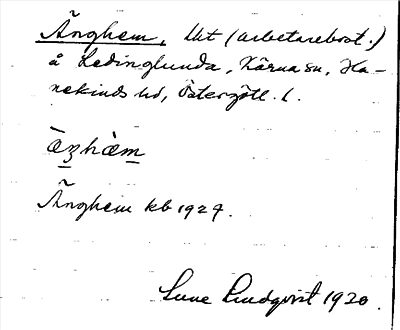 Änghem, lht (arbetarebost.)
å Ledinglunda, Kärna sn, Ha-
nekinds hd, Östergötl. l.
Änghem kb 1924.
Sune Lindqvist 1920.